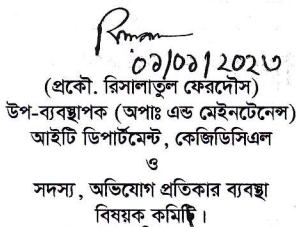 ০১/০১/২০২৩
(প্রকৌ. রিসালাতুল ফেরদৌস)
উপ-ব্যবস্থাপক (অপাঃ এন্ড মেইনটেনেন্স)
আইটি ডিপার্টমেন্ট, কেজিডিসিএল
ও
সদস্য, অভিযোগ প্রতিকার ব্যবস্থা
বিষয়ক কমিটি।